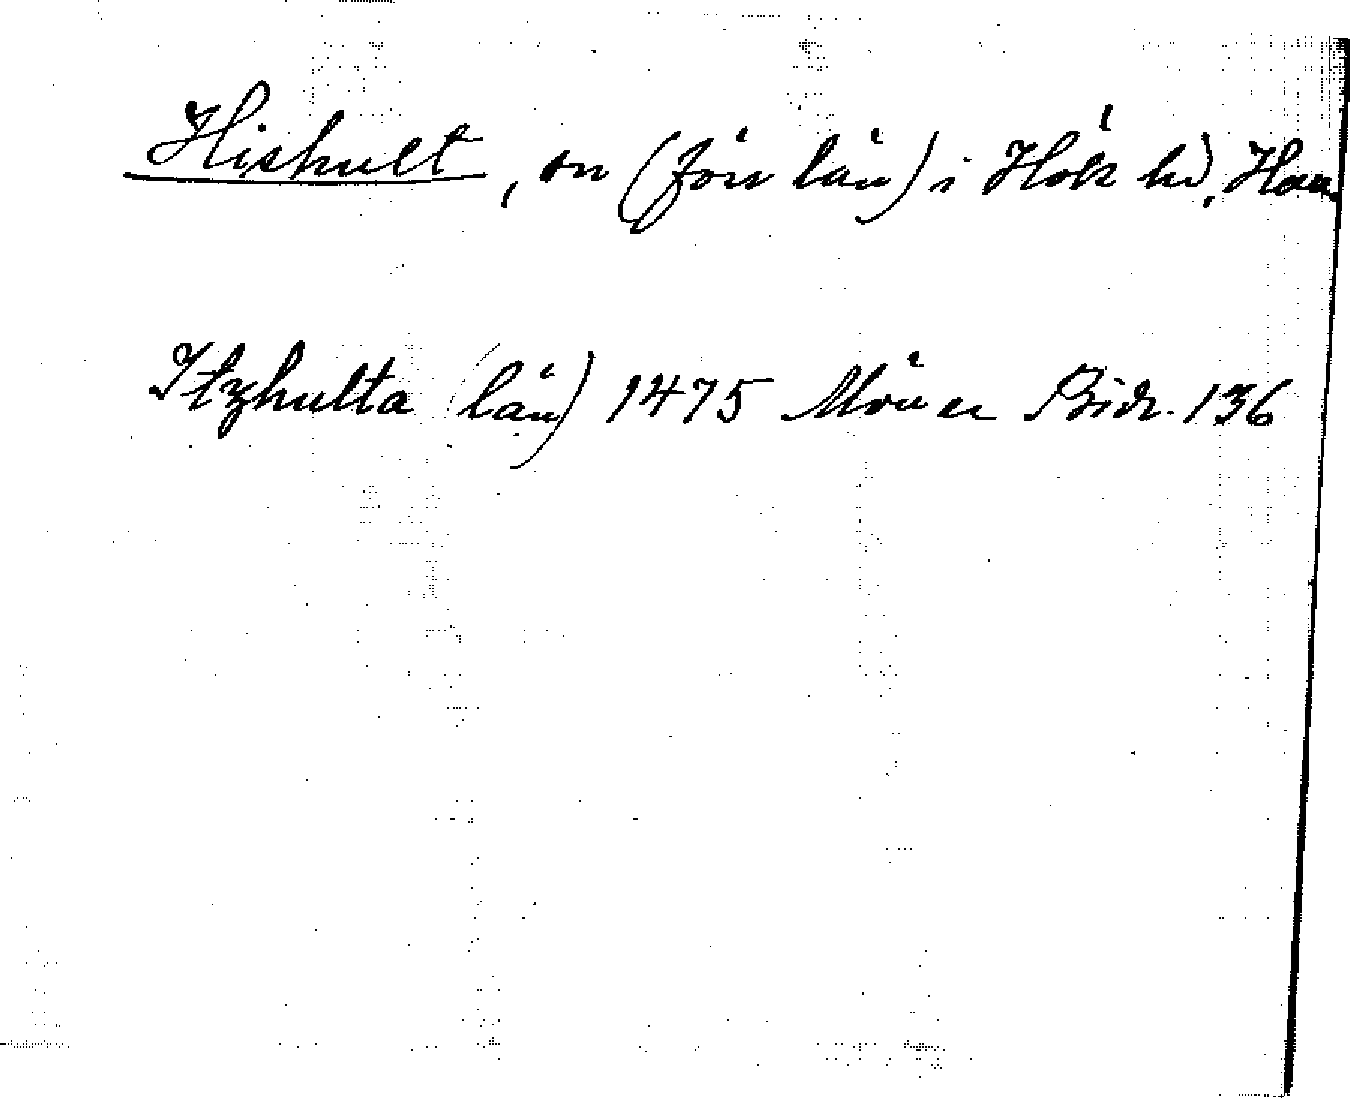 Hishult, on (förr län) i Hök hd, Han
Itzhulta (län) 1475 Mörner Bidr. 136